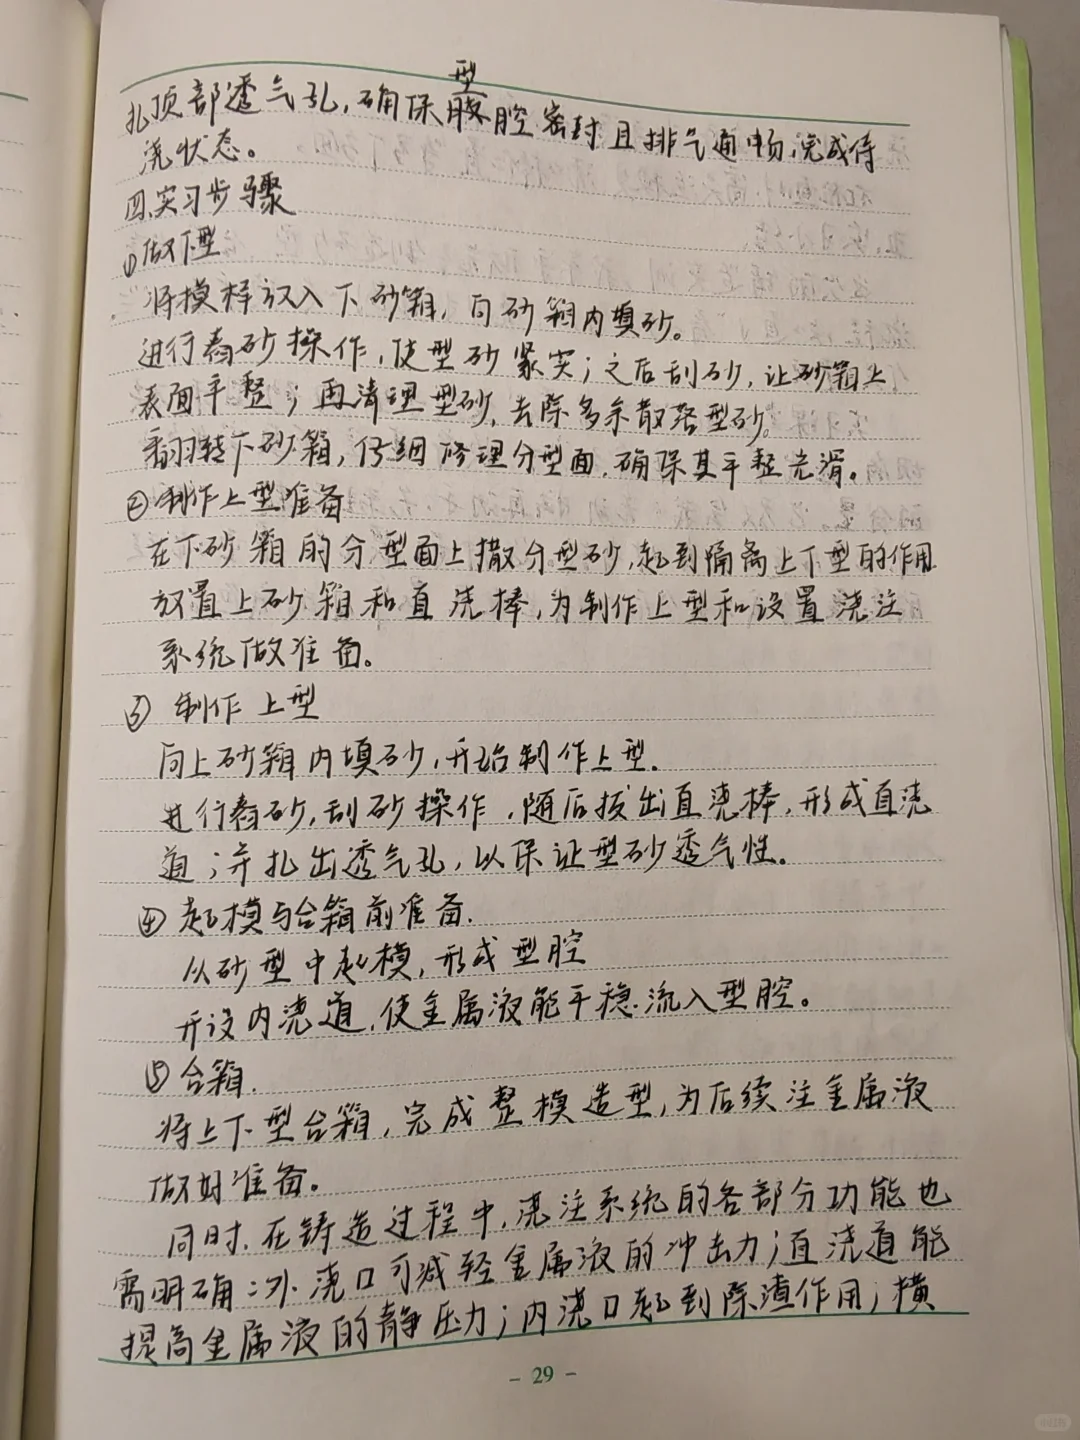 型
扎顶部透气孔,确保腔密封且排气通畅,完成待
浇状态。
四.实习步骤
① 做下型
将模样放入下砂箱,向砂箱内填砂。
进行舂砂操作,使型砂紧实;之后刮砂,让砂箱上
表面平整;再清理型砂,去除多余散落型砂。
翻转下砂箱,仔细修理分型面,确保其平整光滑。
② 制作上型准备
在下砂箱的分型面上撒分型砂,起到隔离上下型的作用
放置上砂箱和直浇棒,为制作上型和设置浇注
系统做准备。
③ 制作上型
向上砂箱内填砂,开始制作上型.
进行舂砂,刮砂操作,随后拔出直浇棒,形成直浇
道;并扎出透气孔,以保证型砂透气性.
④ 起模与合箱前准备.
从砂型中起模,形成型腔
开设内浇道,使金属液能平稳流入型腔。
⑤ 合箱.
将上下型合箱,完成整模造型,为后续注金属液
做好准备。
同时,在铸造过程中,浇注系统的各部分功能也
需明确:外浇口可减轻金属液的冲击力;直浇道能
提高金属液的静压力;内浇口起到除渣作用;横
- 29 -